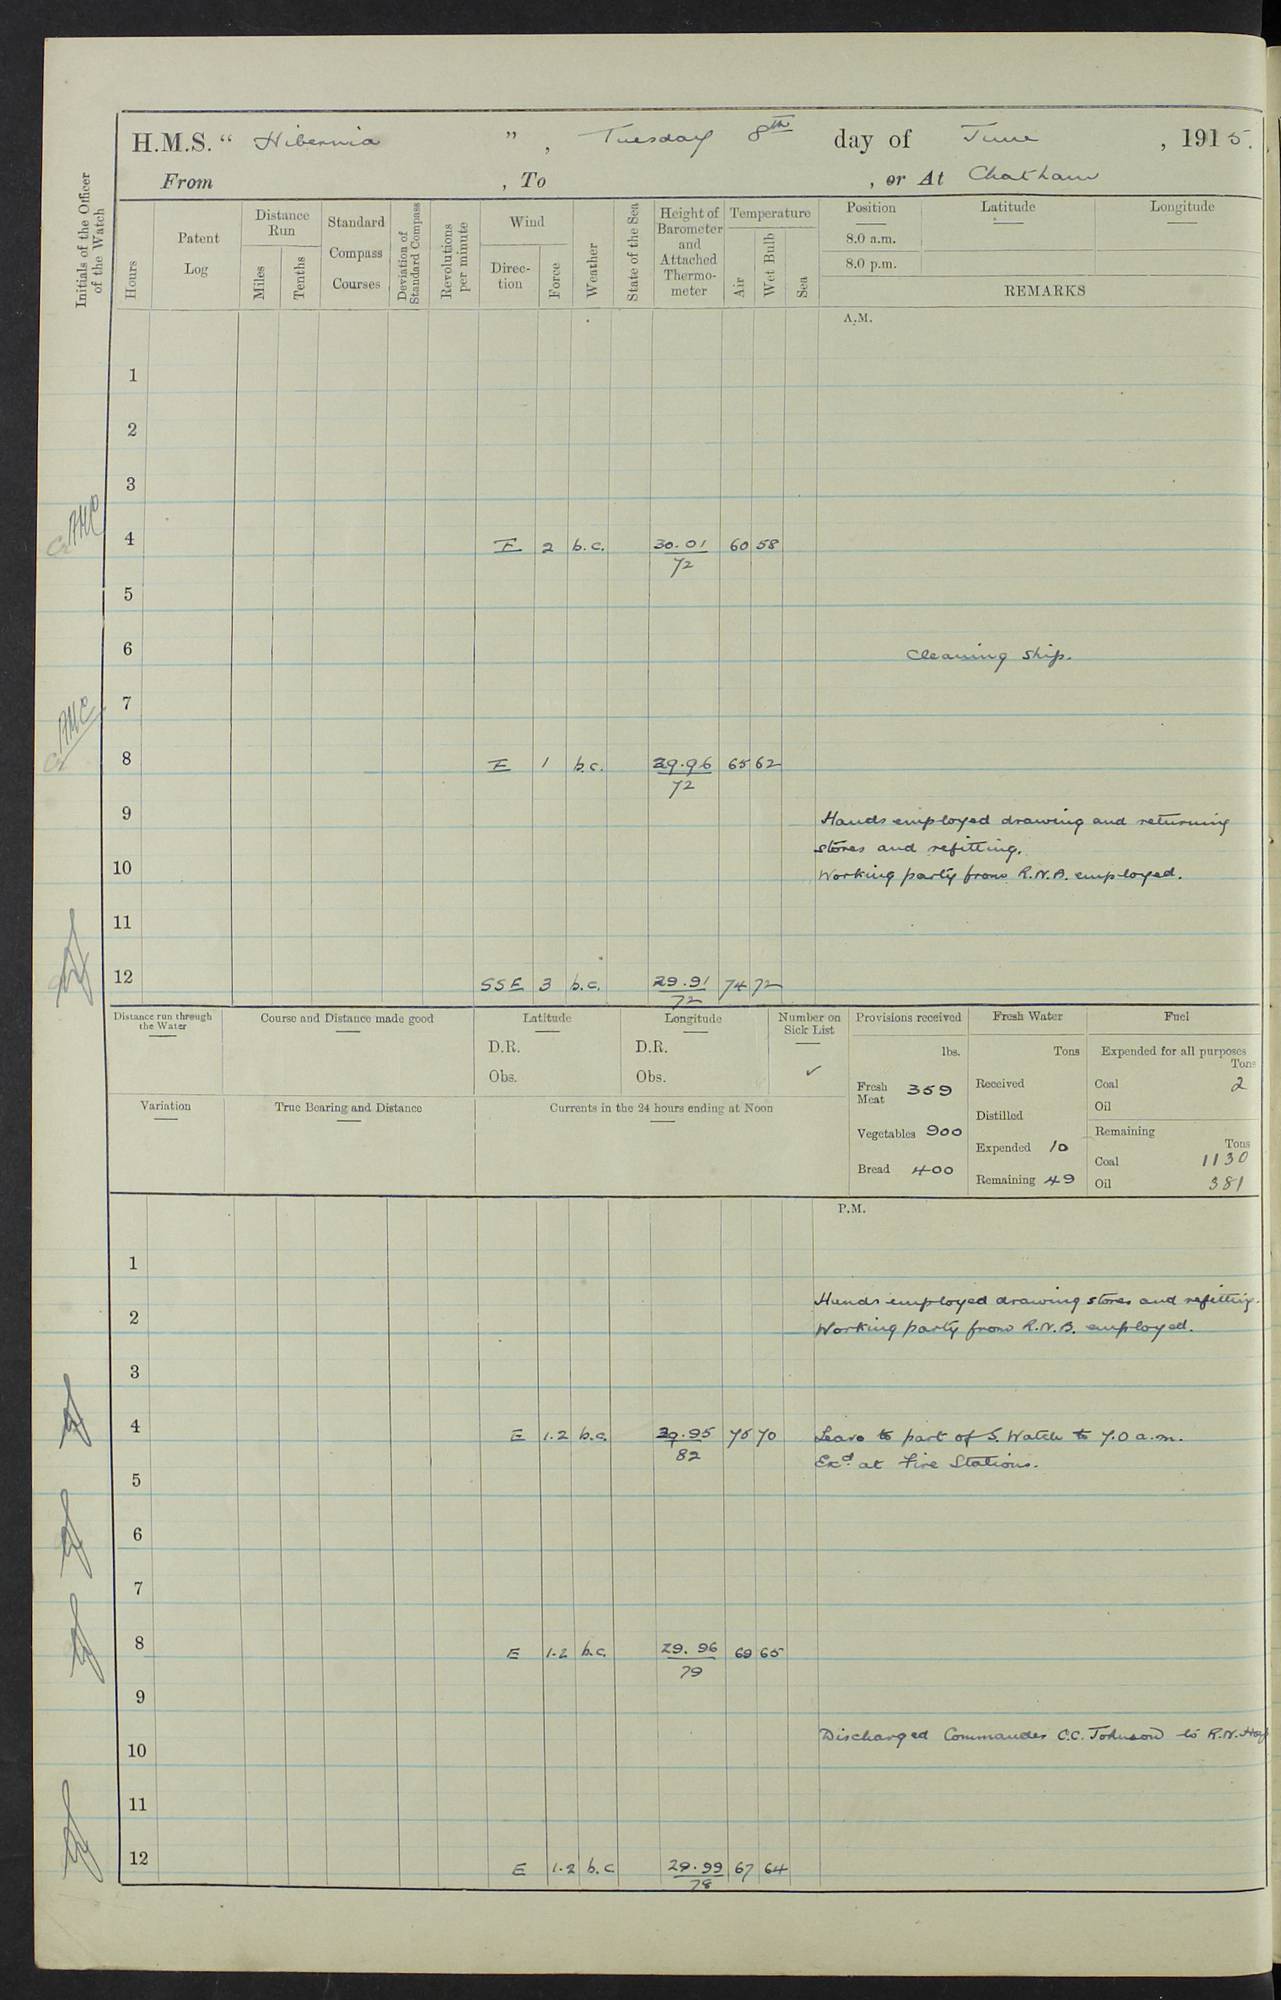 H.M.S. “ Hibernia ”, Tuesday 8th day of June, 1915.
From , To , or At Chatham
Initials of the Officer of the Watch
Hours
Patent Log
Distance Run
Miles
Tenths
Standard Compass Courses
Deviation of Standard Compass
Revolutions per minute
Wind
Direc-tion
Force
Weather
State of the Sea
Height of Barometer and Attached Thermo-meter
Temperature
Air
Wet Bulb
Sea
Position Latitude Longitude
8.0 a.m.
8.0 p.m.
REMARKS
A.M.
1
2
3
4 E 2 b.c. 30.01 60 58
72
5
6 Cleaning ship.
7
8 E 1 b.c. 29.96 65 62
72
9 Hands employed drawing and returning
stores and refitting.
10 Working party from R.N.B. employed.
11
12 SSE 3 b.c. 29.91 74 72
72
Distance run through the Water
Course and Distance made good
Latitude
D.R.
Obs.
Longitude
D.R.
Obs.
Number on Sick List
✓
Provisions received
lbs.
Fresh Meat 359
Vegetables 900
Bread 400
Fresh Water
Tons
Received
Distilled
Expended 10
Remaining 49
Fuel
Expended for all purposes
Tons
Coal 2
Oil
Remaining
Tons
Coal 1130
Oil 381
Variation
True Bearing and Distance
Currents in the 24 hours ending at Noon
P.M.
1
2 Hands employed drawing stores and refitting.
Working party from R.N.B. employed.
3
4 E 1.2 b.c. 29.95 75 70 Leave to part of S. Watch to 7.0 a.m.
82 Exd. at Fire Stations.
5
6
7
8 E 1.2 b.c. 29.96 69 65
79
9
10 Discharged Commander C.C. Johnson to R.N. Hosp
11
12 E 1.2 b.c 29.99 67 64
78